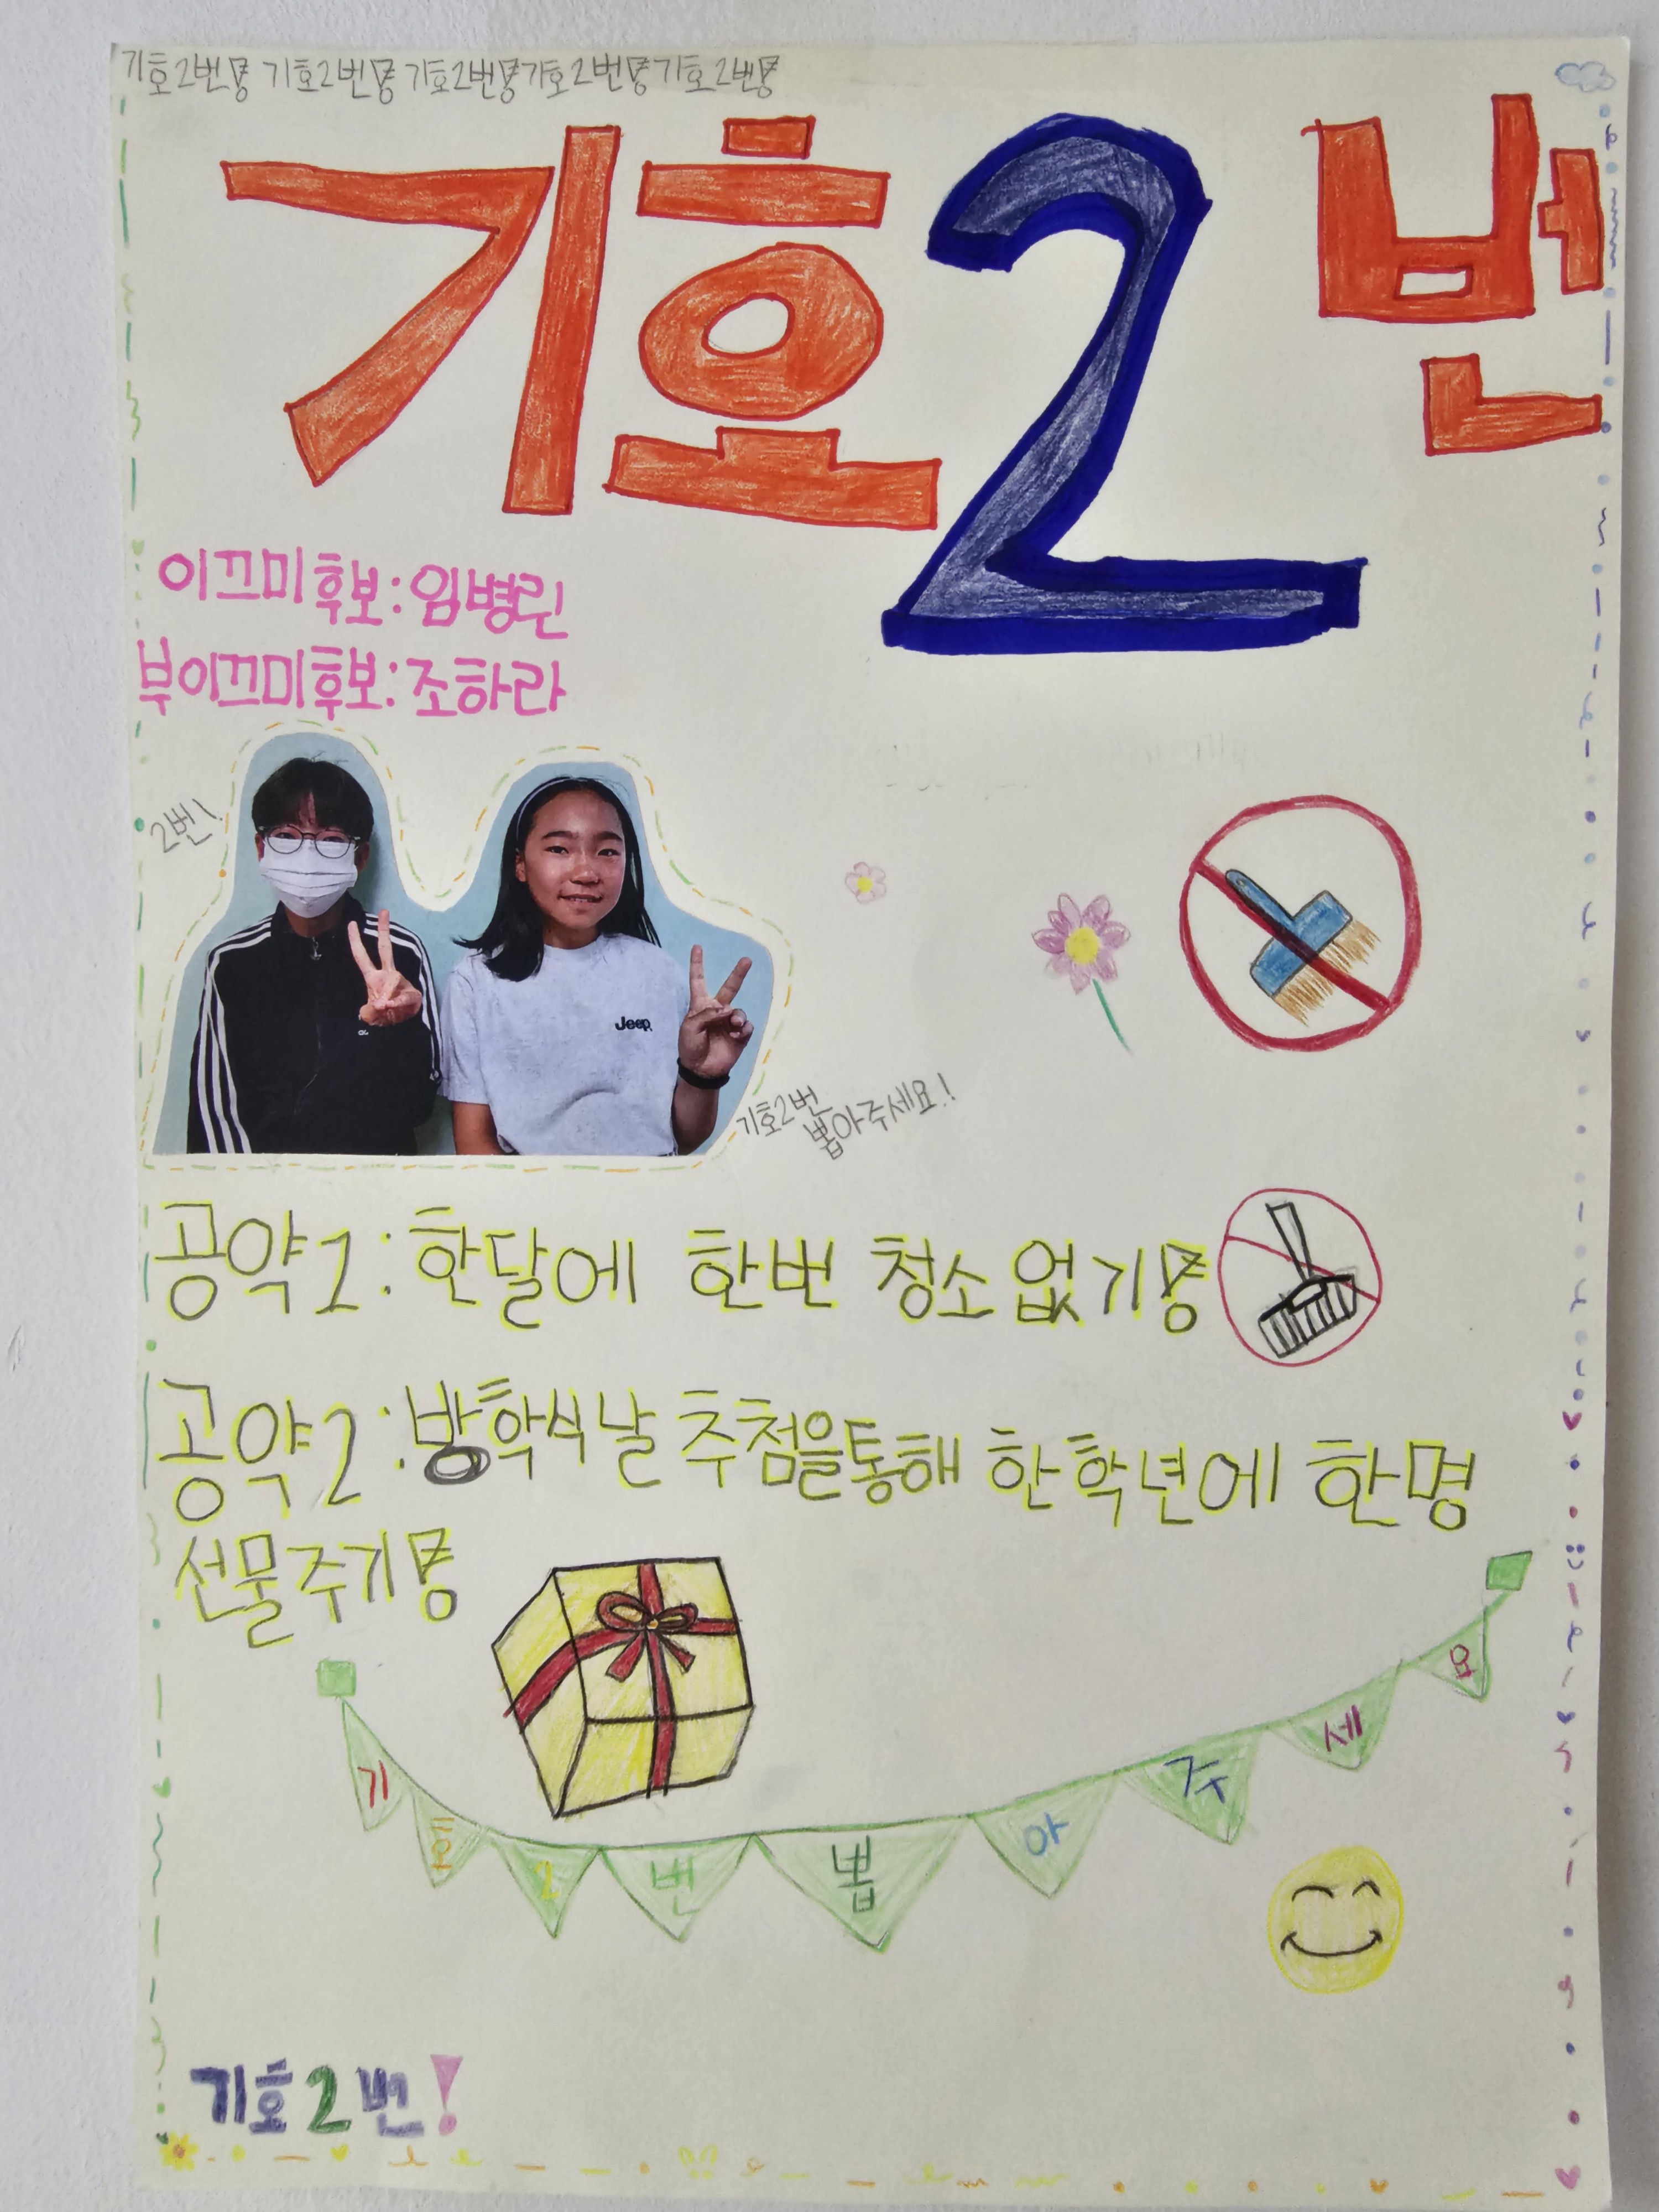 기호2번! 기호2번! 기호2번! 기호2번! 기호2번!
기호2번
이끄미후보:임병린
부이끄미후보:조하라
2번!
Jeep
기호2번
뽑아주세요!
공약1:한달에 한번 청소없기!
공약2:방학식날 추첨을통해 한학년에 한명
선물주기!
기호2번뽑아주세요
기호2번!